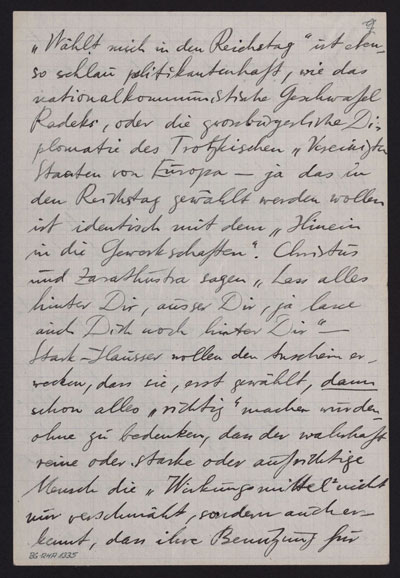 9
„Wählt mich in den Reichstag“ ist eben-
so schlau politikantenhaft, wie das
nationalkommunistische Geschwafel
Radeks, oder die grossbürgerliche Di-
plomatie des Trotzkischen „Vereinigten
Staaten von Europa — ja das in
den Reichstag gewählt werden wollen
ist identisch mit dem „Hinein
in die Gewerkschaften“. Christus
und Zarathustra sagen „Lass alles
hinter Dir, ausser Dir, ja lasse
auch Dich noch hinter Dir“ —
Stark-Hausser wollen den Anschein er-
wecken, dass sie, erst gewählt, dann
schon alles „richtig“ machen würden
ohne zu bedenken, dass der wahrhaft
reine oder starke oder aufrichtige
Mensch die „Wirkungsmittel“ nicht
nur verschmäht, sondern auch er-
kennt, dass ihre Benutzung für
BG RHA 1335